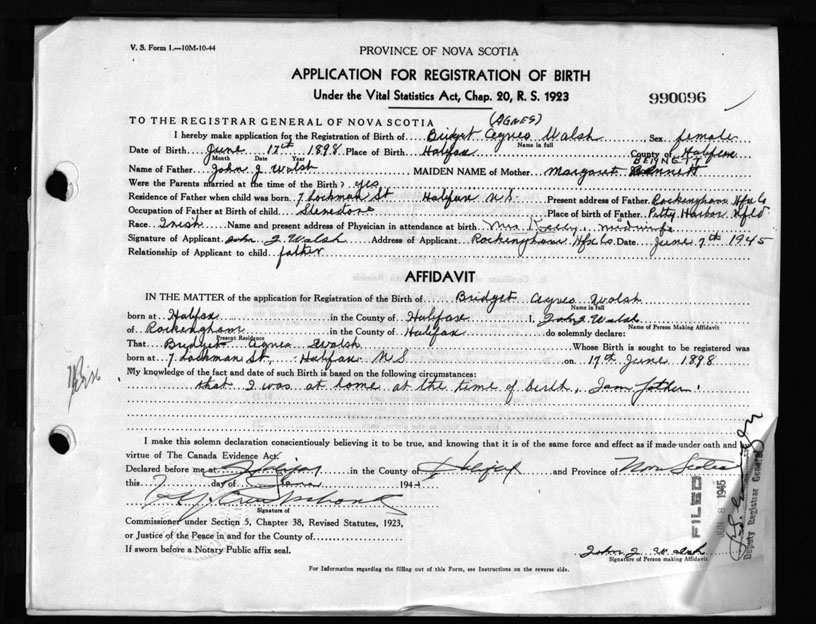 V. S. Form 1.—10M-10-44
PROVINCE OF NOVA SCOTIA
APPLICATION FOR REGISTRATION OF BIRTH
Under the Vital Statistics Act, Chap. 20, R. S. 1923
990096
(AGNES)
TO THE REGISTRAR GENERAL OF NOVA SCOTIA
I hereby make application for the Registration of Birth of Bridget Agnes Walsh Sex female
Name in full
Date of Birth June 17th 1898 Place of Birth Halifax County of Halifax
Month Date Year
BENNETT
Name of Father John J Walsh MAIDEN NAME of Mother Margaret Bennett
Were the Parents married at the time of the Birth? yes
Residence of Father when child was born 7 Lockman St Halifax N S Present address of Father Rockingham Hfx Co
Occupation of Father at Birth of child Stevedore Place of birth of Father Petty Harbor Nfld
Race Irish Name and present address of Physician in attendance at birth Mrs midwife
Signature of Applicant John J Walsh Address of Applicant Rockingham Hfx Co Date June 7th 1945
Relationship of Applicant to child father
AFFIDAVIT
IN THE MATTER of the application for Registration of the Birth of Bridget Agnes Walsh
Name in full
born at Halifax in the County of Halifax I, John J Walsh
Name of Person Making Affidavit
of Rockingham in the County of Halifax do solemnly declare:
Present Residence
That Bridget Agnes Walsh Whose Birth is sought to be registered was
born at 7 Lockman St, Halifax N S on 17th June 1898
My knowledge of the fact and date of such Birth is based on the following circumstances:
that I was at home at the time of birth, I am father.
I make this solemn declaration conscientiously believing it to be true, and knowing that it is of the same force and effect as if made under oath and
virtue of The Canada Evidence Act.
Declared before me at Halifax in the County of Halifax and Province of Nova Scotia
this 7 day of June 194
Signature of
Commissioner under Section 5, Chapter 38, Revised Statutes, 1923,
or Justice of the Peace in and for the County of
If sworn before a Notary Public affix seal.
John J Walsh
Signature of Person making Affidavit
For Information regarding the filling out of this Form, see Instructions on the reverse side.
FILED
JUN 8 1945
Deputy Registrar General